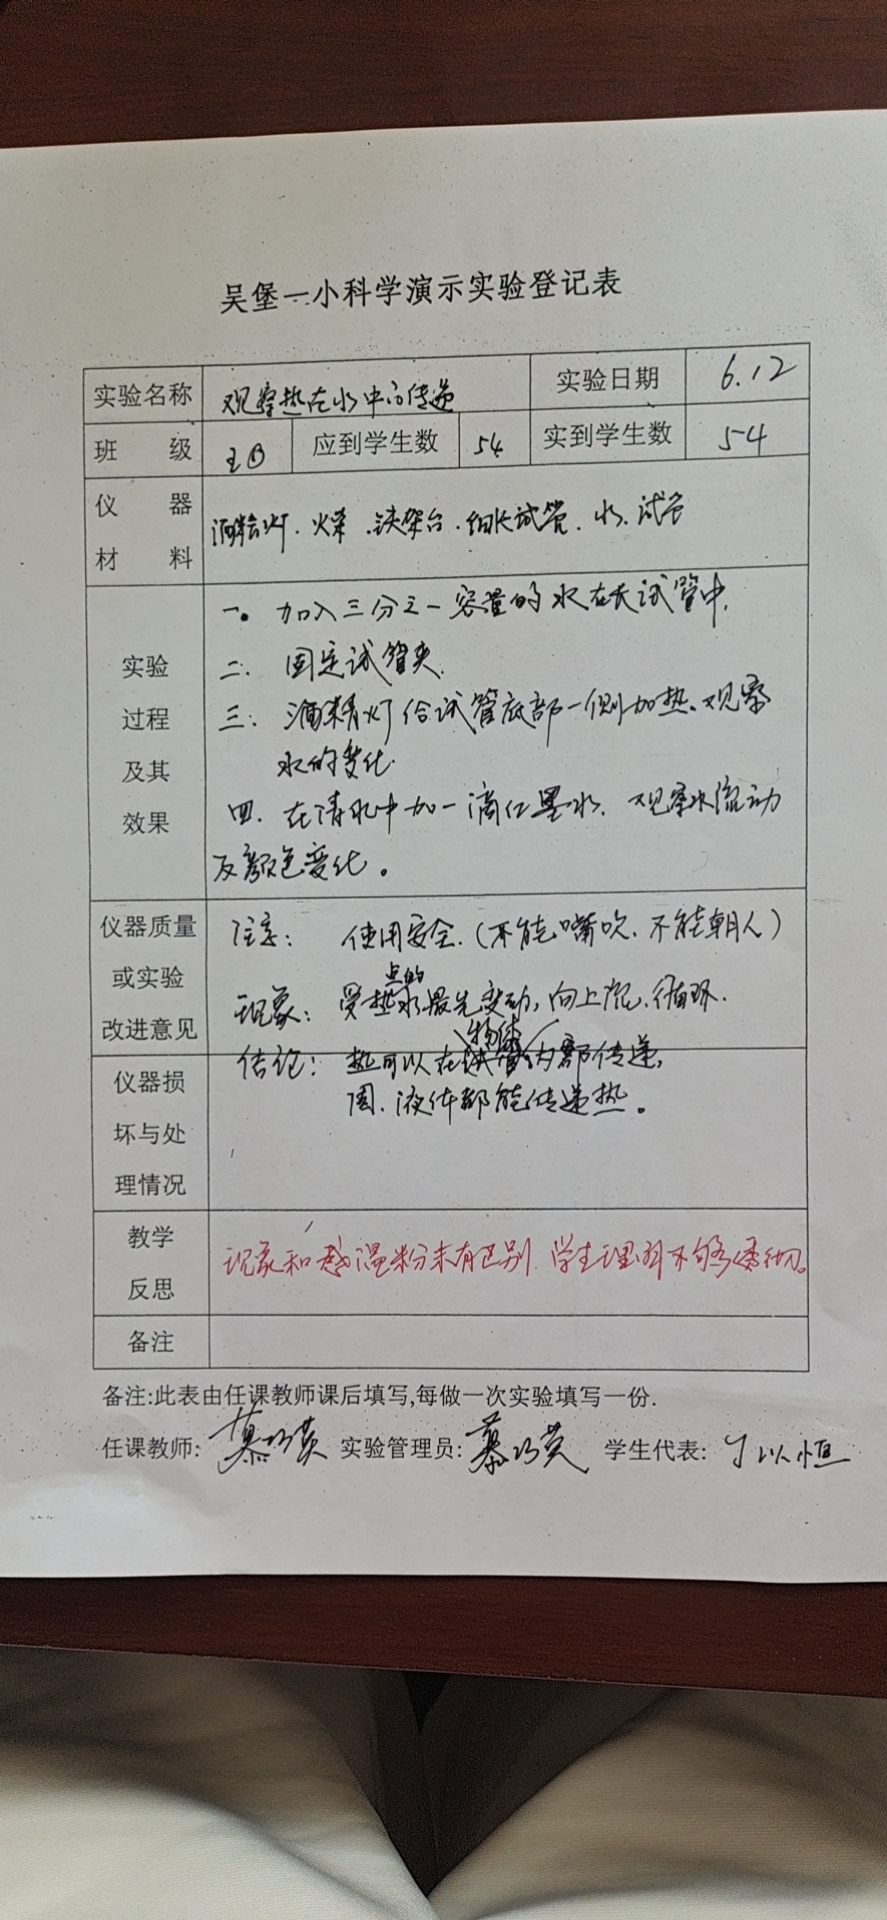 吴堡一小科学演示实验登记表
实验名称 观察热在水中的传递 实验日期 6.12
班 级 五① 应到学生数 54 实到学生数 54
仪 器
材 料
酒精灯.火柴.铁架台.细长试管.水.试管
实验
过程
及其
效果
一。加入三分之一容量的水在长试管中.
二.固定试管夹.
三.酒精灯给试管底部一侧加热.观察
水的变化.
四.在清水中加一滴红墨水.观察水流动
及颜色变化。
仪器质量
或实验
改进意见
注意: 使用安全.(不能嘴吹.不能朝人)
点的
现象: 受热水最先变动,向上流,循环.
物体
结论: 热可以在试管内部传递,
固.液体都能传递热。
仪器损
坏与处
理情况
教学
反思
现象和感温粉末有区别.学生理解不够透彻。
备注
备注:此表由任课教师课后填写,每做一次实验填写一份.
任课教师: 慕巧英 实验管理员: 慕巧英 学生代表: 丁以恒